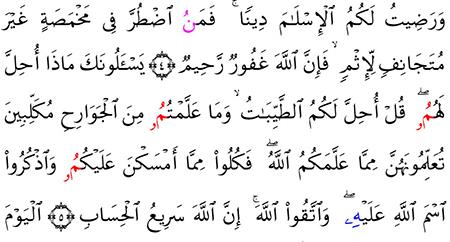 وَرَضِيتُ لَكُمُ ٱلۡإِسۡلَٰمَ دِينٗاۚ فَمَنُ ٱضۡطُرَّ فِي مَخۡمَصَةٍ غَيۡرَ
مُتَجَانِفٖ لِّإِثۡمٖ فَإِنَّ ٱللَّهَ غَفُورٞ رَّحِيمٞ ٤ يَسۡـَٔلُونَكَ مَاذَآ أُحِلَّ
لَهُمُۥۖ قُلۡ أُحِلَّ لَكُمُ ٱلطَّيِّبَٰتُ وَمَا عَلَّمۡتُمُۥ مِنَ ٱلۡجَوَارِحِ مُكَلِّبِينَ
تُعَلِّمُونَهُنَّ مِمَّا عَلَّمَكُمُ ٱللَّهُۖ فَكُلُواْ مِمَّآ أَمۡسَكۡنَ عَلَيۡكُمُۥ وَٱذۡكُرُواْ
ٱسۡمَ ٱللَّهِ عَلَيۡهِۦۖ وَٱتَّقُواْ ٱللَّهَۚ إِنَّ ٱللَّهَ سَرِيعُ ٱلۡحِسَابِ ٥ ٱلۡيَوۡمَ